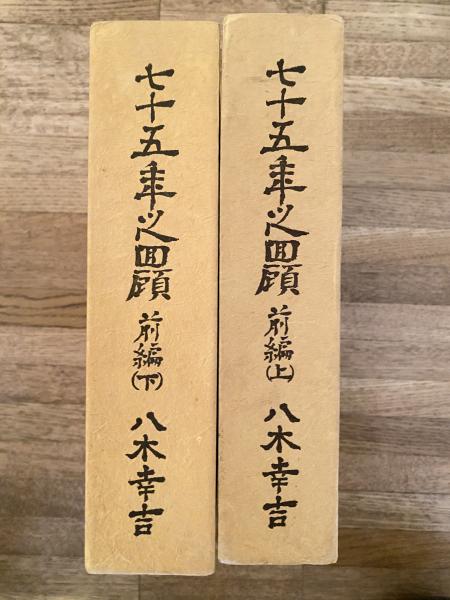 七十五年之回顧 前編(上) 八木幸吉
七十五年之回顧 前編(下) 八木幸吉